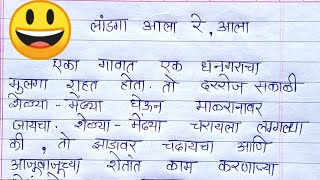 लांडगा आला रे, आला
एका गावात एक धनगराचा
मुलगा राहत होता. तो दररोज सकाळी
शेळ्या - मेंढ्या घेऊन माळरानावर
जायचा. शेळ्या - मेंढ्या चरायला लागल्या
की, तो झाडावर चढायचा आणि
आजूबाजूच्या शेतात काम करणाऱ्या